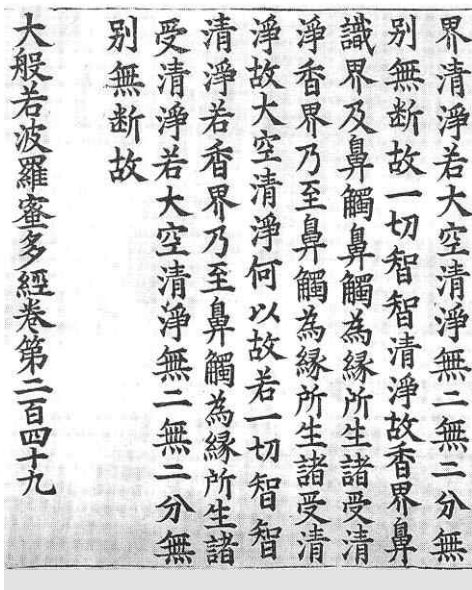 界清淨若大空清淨無二無二分無
別無断故一切智智清淨故香界鼻
識界及鼻觸鼻觸為緣所生諸受清
淨香界乃至鼻觸為緣所生諸受清
淨故大空清淨何以故若一切智智
清淨若香界乃至鼻觸為緣所生諸
受清淨若大空清淨無二無二分無
別無断故
大般若波羅蜜多經卷第二百四十九